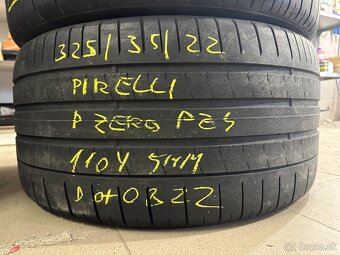 325/35/22
PIRELLI
P ZERO PZ4
110Y 5MM
DOT 0322
bazar.sk